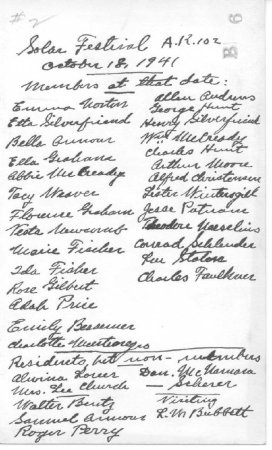 #2
Solar Festival A.K. 102
October 18, 1941
B 6
Members at that date:
Emma Norton
Etta Silverfriend
Bella Armour
Ella Graham
Abbie McCready
Tacy Weaver
Florence Graham
Teste Newcomb
Marie Fischer
Ida Fisher
Rose Gilbert
Adah Price
Emily Bessemer
Charlotte
Allen Andrews
George Hunt
Henry Silverfriend
Wm McCready
Charles Hunt
Arthur Moore
Alfred Christensen
Lester Wintersgill
Jesse Putnam
Theodore Naeselius
Conrad Schlender
Lou Staton
Charles Faulkner
Residents but non-members
Alwina Dan. McNamara
Mrs. Lee Church — Scherer
Walter Bentz
Samuel Armour
Roger Perry
Visiting
L.M. Bubbett